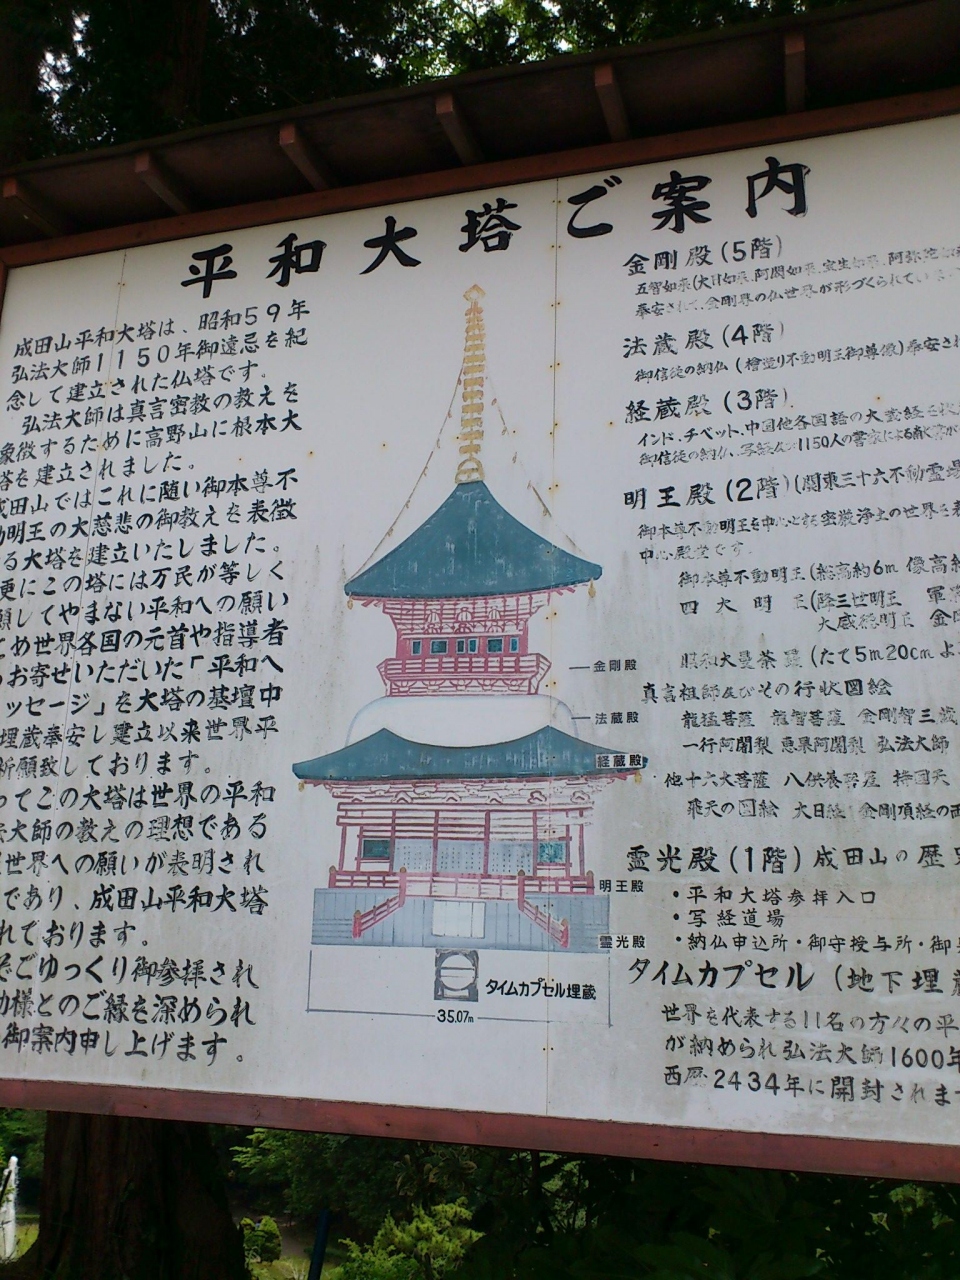 平和大塔ご案内
成田山平和大塔は、昭和59年
弘法大師1150年御遠忌を紀
念して建立された仏塔です。
弘法大師は真言密教の教えを
象徴するために高野山に根本大
塔を建立されました。
成田山ではこれに随い御本尊不
動明王の大慈悲の御教えを表徴
る大塔を建立いたしました。
更にこの塔には万民が等しく
願してやまない平和への願い
こめ世界各国の元首や指導者
お寄せいただいた「平和へ
ッセージ」を大塔の基壇中
埋蔵奉安し建立以来世界平
祈願致しております。
ってこの大塔は世界の平和
法大師の教えの理想である
世界への願いが表明され
であり、成田山平和大塔
れております。
ぞごゆっくり御参拝され
動様とのご縁を深められ
御案内申し上げます。
金剛殿
法蔵殿
経蔵殿
明王殿
霊光殿
タイムカプセル埋蔵
35.07m
金剛殿(5階)
五智如来(大日如来、阿閦如来、宝生如来、阿弥陀如来
奉安されて、金剛界の仏世界が形づくられています
法蔵殿(4階)
御信徒の納仏(檜造り不動明王御尊像)奉安され
経蔵殿(3階)
インド、チベット、中国他各国語の大蔵経
御信徒の納仏、写経 1150人の書家による
明王殿(2階)(関東三十六不動霊場
御本尊不動明王を中心とする密厳浄土の世界を表
中心殿堂です。
御本尊不動明王(総高約6m 像高約
四大明王(降三世明王 軍荼
大威徳明王 金剛
昭和大曼荼羅(たて5m20cm よ
真言祖師及びその行状図絵
龍猛菩薩 龍智菩薩 金剛智三蔵
一行阿闍梨 恵果阿闍梨 弘法大師
他十六大菩薩 八供養菩薩 持国天
飛天の図絵 大日経 金剛頂経の
霊光殿(1階)成田山の歴史
・平和大塔参拝入口
・写経道場
・納仏申込所・御守授与所・御
タイムカプセル(地下埋蔵
世界を代表する11名の方々の平
が納められ弘法大師1600年
西暦2434年に開封されます